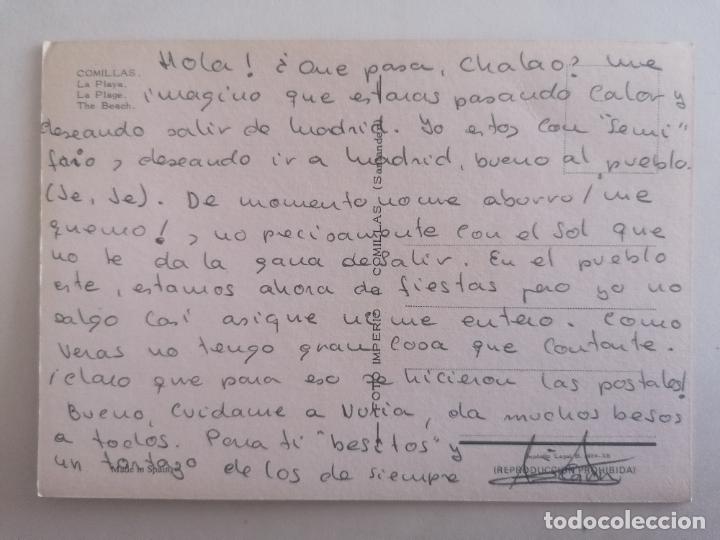 COMILLAS.
La Playa.
La Plage.
The Beach.
Hola! ¿Que pasa, Chalao? me
imagino que estaras pasando Calor y
deseando salir de Madrid. Yo estoy con "semi"
frio y deseando ir a Madrid, bueno al pueblo.
(Je, Je). De momento no me aburro / me
quemo! y no precisamente con el Sol que
no le da la gana de salir. En el pueblo
este, estamos ahora de fiestas pero yo no
salgo casi asique ni me entero. Como
veras no tengo gran cosa que contarte.
¡claro que para eso se hicieron las postales!
Bueno, Cuidame a Nuria, da muchos besos
a todos. Para ti "besitos" y
un tortazo de los de siempre
FOTO IMPERIO - COMILLAS (Santander)
Made in Spain
(REPRODUCCION PROHIBIDA)
todocoleccion.net